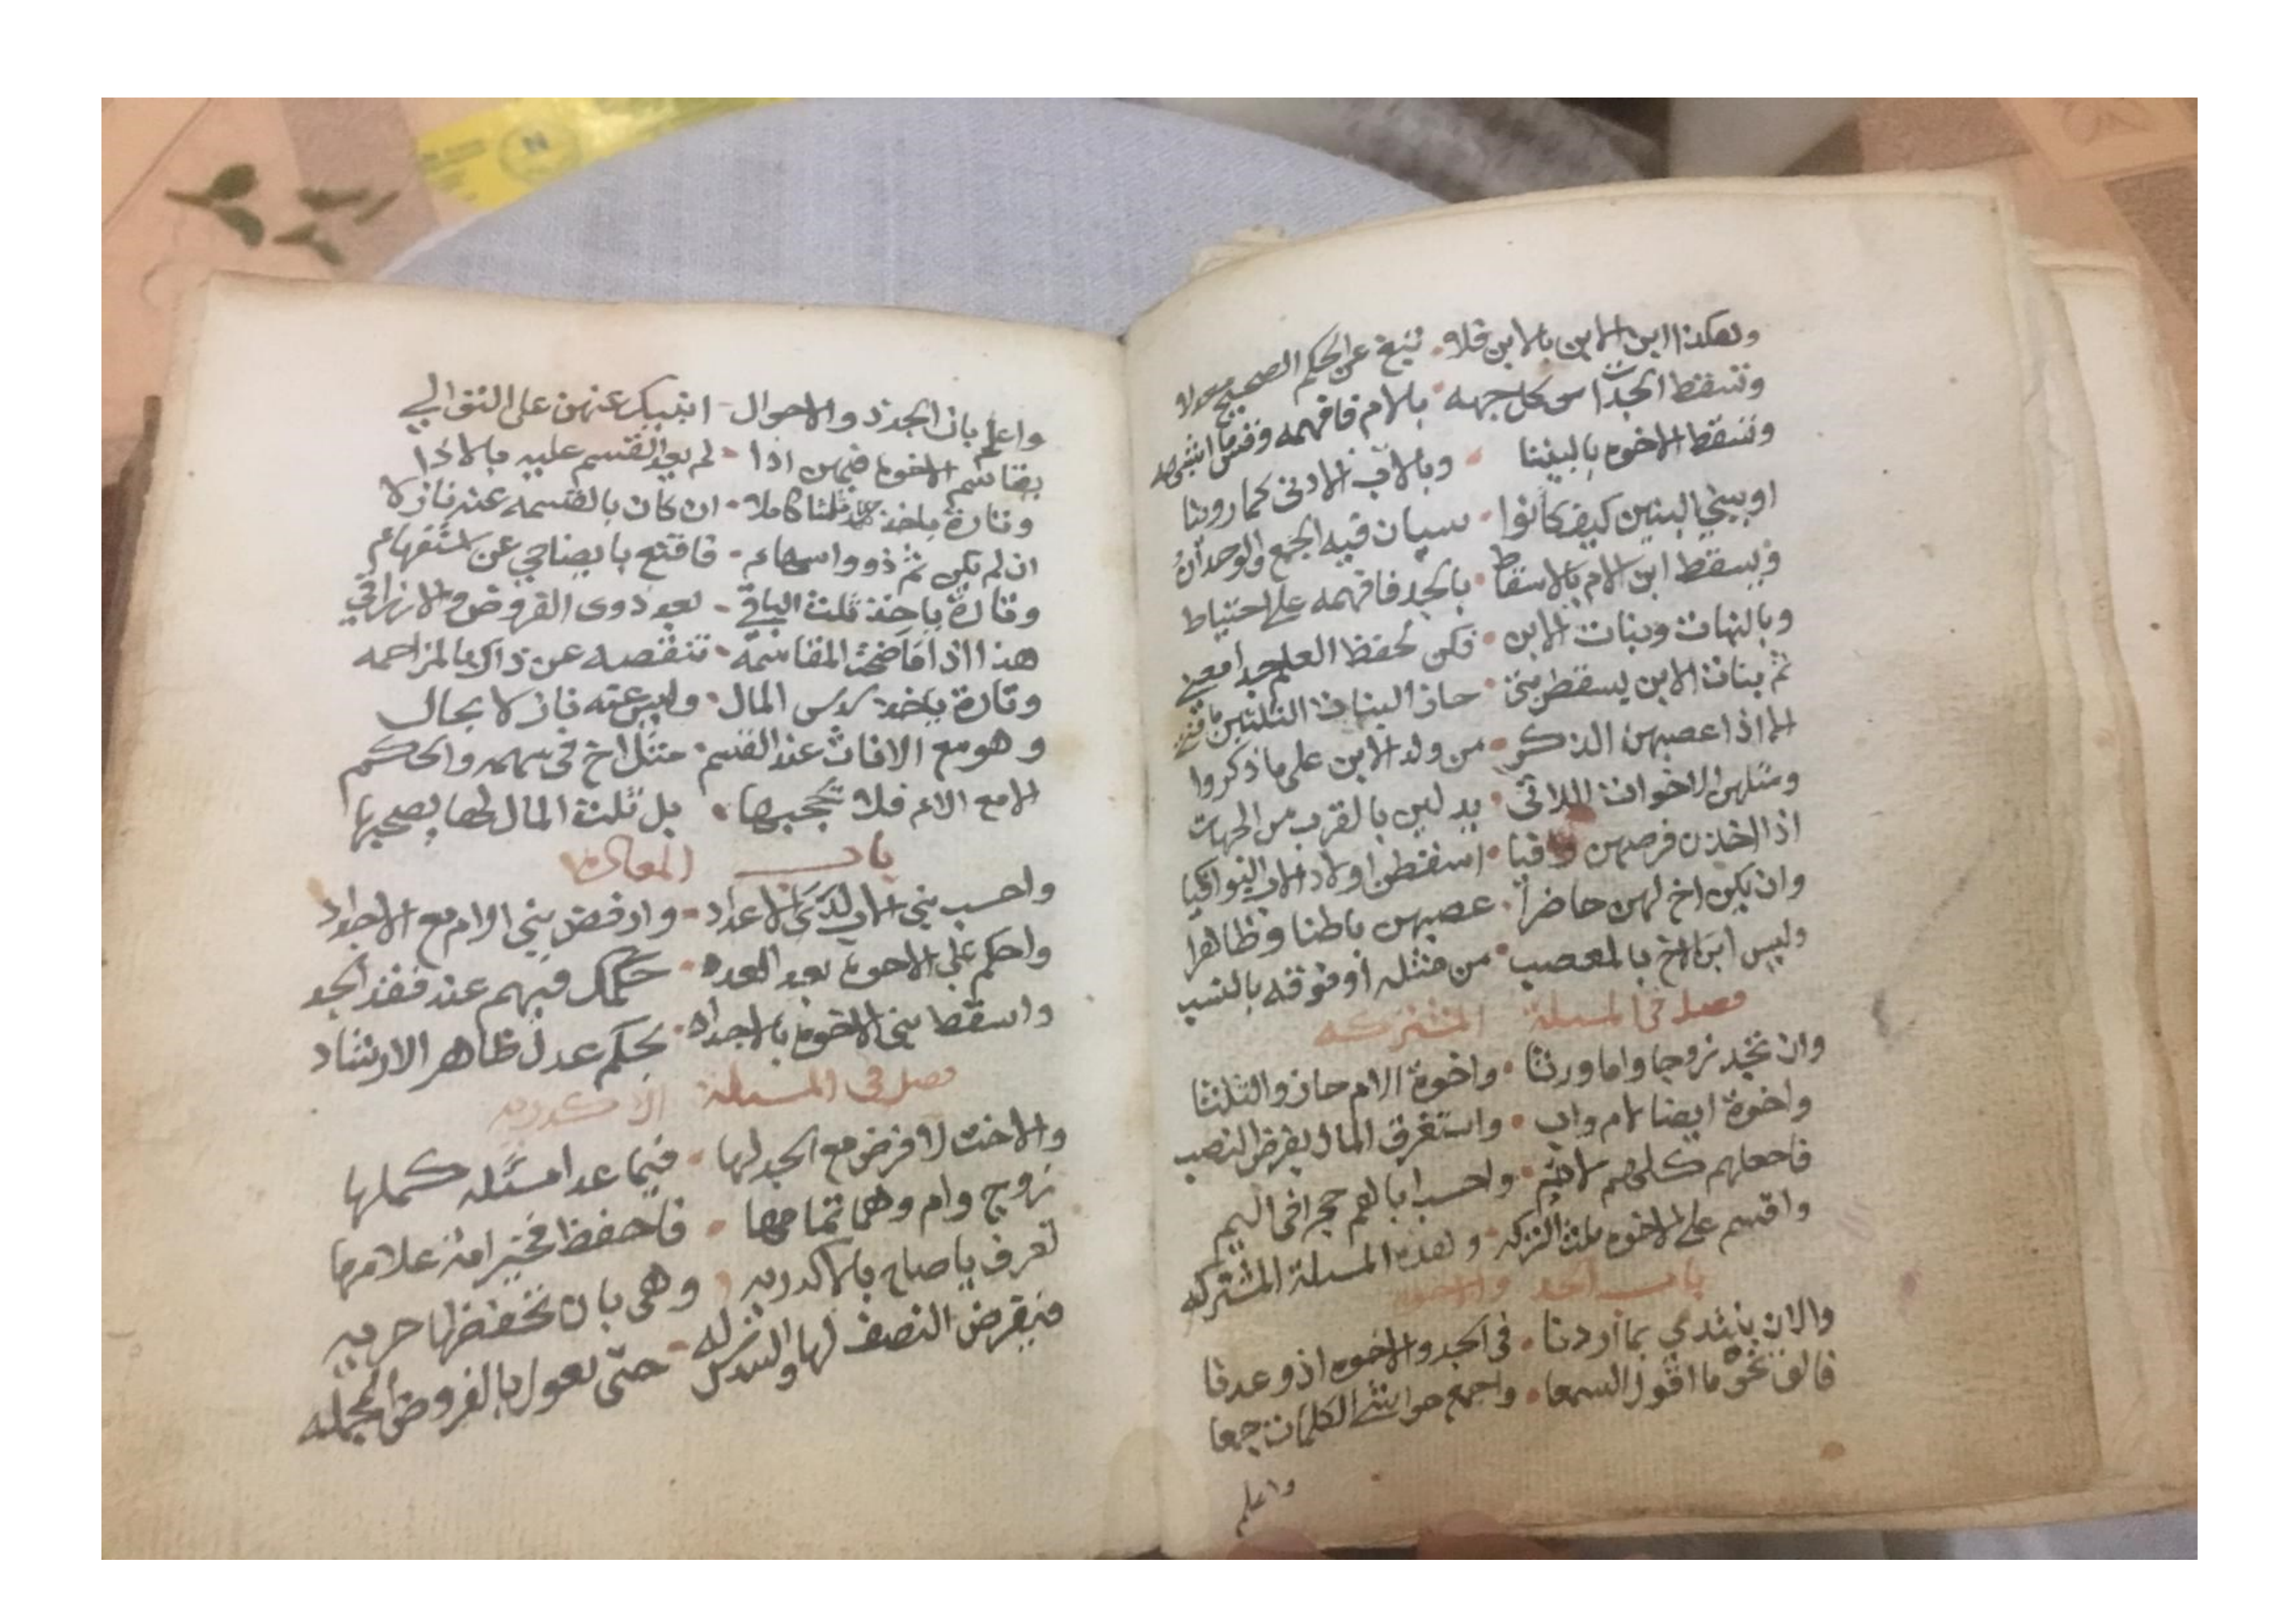 وهكذا ابن الابن بالابن فلا تبغ عن الحكم الصحيح معدلا
وتسقط الجدات من كل جهه بالام فافهمه وقس ما اشبهه
وتسقط الاخوه بالبنينا وبالاب الادنى كما روينا
او ببني البنين كيف كانوا سيان فيه الجمع والوحدان
ويسقط ابن الام بالاسقاط بالجد فافهمه على احتياط
وبالبنات وبنات الابن فكن لحفظ العلم جدا معني
ثم بنات الابن يسقطن متى حاز البنات الثلثين يا فتى
الا اذا عصبهن الذكر من ولد الابن على ما ذكروا
ومثلهن الاخوات اللاتي يدلين بالقرب من الجهات
اذا اخذن فرضهن وافيا اسقطن اولاد الاب البواكيا
وان يكن اخ لهن حاضرا عصبهن باطنا وظاهرا
وليس ابن الاخ بالمعصب من مثله او فوقه بالنسب
فصل في المسلة المشتركه
وان تجد زوجا واما ورثا واخوة الام حازوا الثلثا
واخوة ايضا لام واب واستغرق المال بفرض النصب
فاجعلهم كلهم لام واحسب اباهم حجرا في اليم
واقسم على الاخوه ثلث التركه وهذه المسلة المشتركه
باب الجد والاخوه
والان نبتدي بما اردنا في الجد والاخوه اذ وعدنا
فالق نحو ما اقول السمعا واجمع حواشي الكلمات جمعا
واعلم
واعلم بان الجد ذو الاحوال انبيك عنهن على التوالي
يقاسم الاخوة فيهن اذا لم يعد القسم عليه بالاذا
وتارة ياخذ ثلثا كاملا ان كان بالقسمه عنه نازلا
ان لم يكن ثم ذووا سهام فاقنع بايضاحي عن استفهام
وتارة ياخذ ثلث الباقي بعد ذوى الفروض والارزاقي
هذا اذا ما ضحت المقاسمه تنقصه عن ذاك بالمزاحمه
وتارة ياخذ سدس المال وليس عنه نازلا بحال
وهو مع الاناث عند القسم مثل اخ في سهمه والحكم
الا مع الام فلا تحجبها بل ثلث المال لها يصحبها
باب المعاده
واحسب بني الاب لدى الاعداد وارفض بني الام مع الاجداد
واحكم على الاخوة بعد العد حكمك فيهم عند فقد الجد
واسقط بني الاخوة بالاجداد بحكم عدل ظاهر الارشاد
فصل في المسلة الاكدريه
والاخت لا فرض مع الجد لها فيما عدا مسئله كملها
زوج وام وهما تمامها فاحفظ فخير امة علامها
تعرف يا صاح بالاكدريه وهي بان تحفظها حريه
فيفرض النصف لها والسدس له حتى تعول بالفروض المجمله